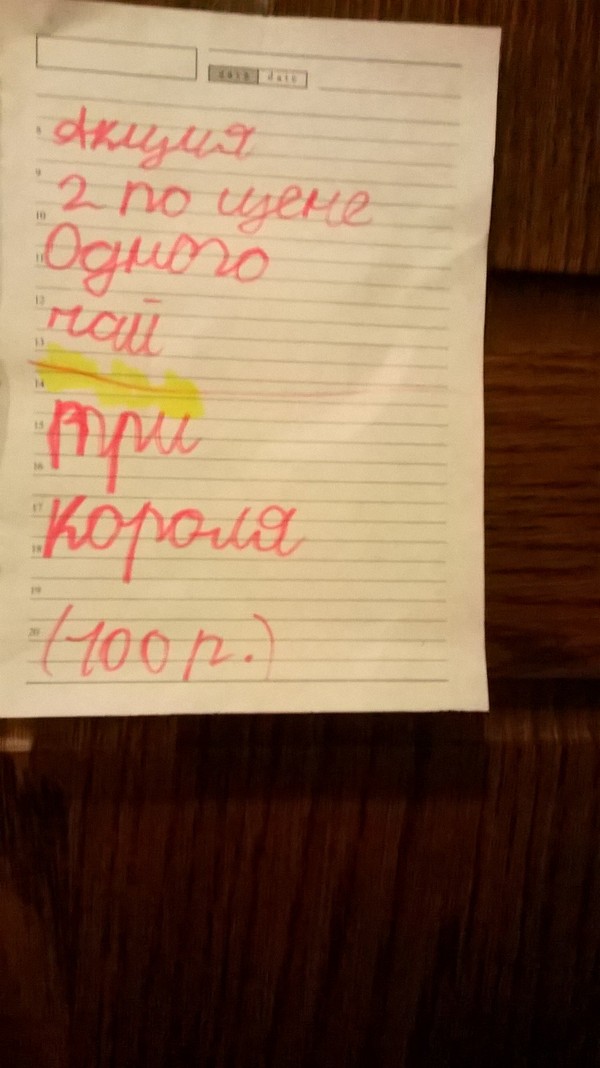 date date
Акция
2 по цене
Одного
чай
три
короля
(100 р.)
8
9
10
11
12
13
14
15
16
17
18
19
20